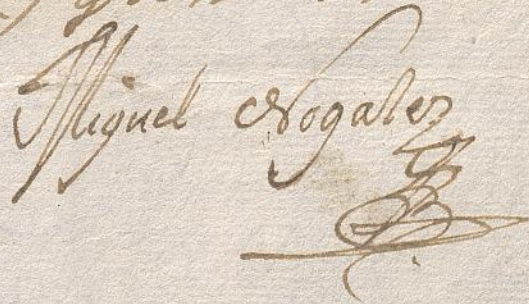 Miguel Nogales